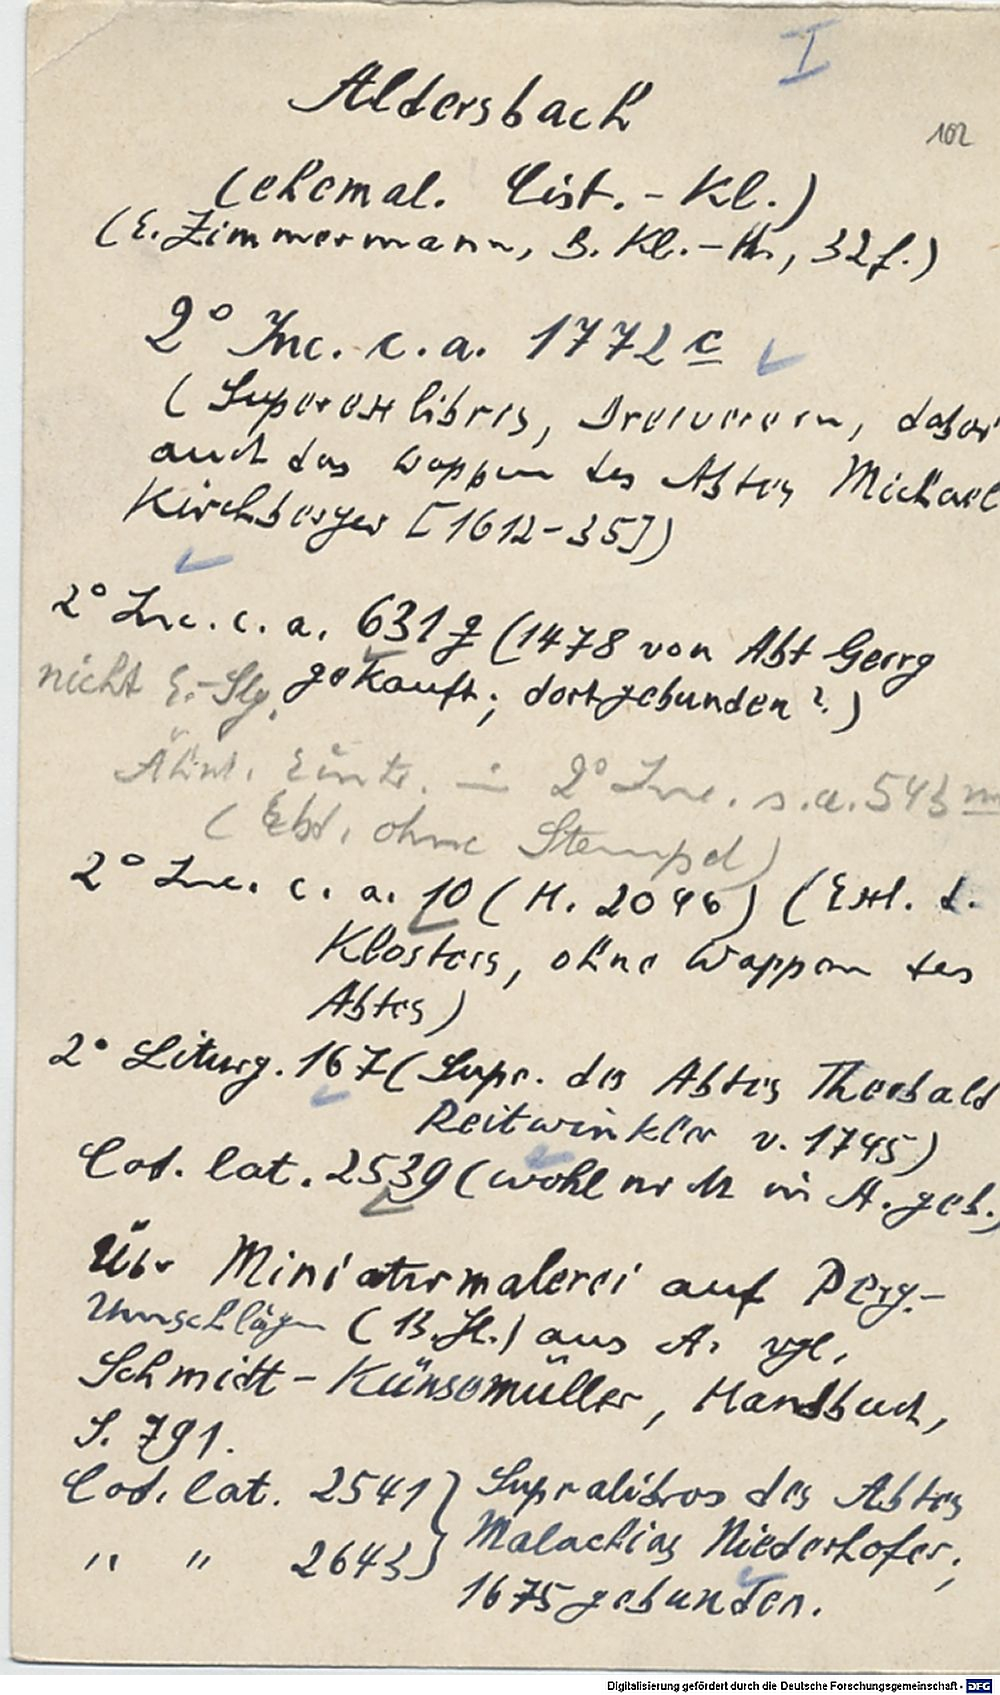 I
Aldersbach
102
(ehemal. Cist.-Kl.)
(E. Zimmermann, B. Kl.-, 32f.)
2° Inc. c.a. 1772 c
(Superexlibris, Dreiverein, dabei
auch das Wappen des Abtes Michael
Kirchberger [1612-35])
2° Inc. c. a. 631 g (1478 von Abt Georg
nicht E.-Slg. gekauft; dort gebunden?)
Ähnl. Eintr. in 2° Inc. s.a. 543 m
(Ebd. ohne Stempel)
2° Inc. c. a. 10 (H. 2046) (Exl. d.
Klosters, ohne Wappen des
Abtes)
2° Liturg. 167 (Supr. des Abtes Theobald
Reitwinkler v. 1745)
Cod. lat. 2539 (wohl in A. geb.)
Üb. Miniaturmalerei auf Perg.-
Umschlägen (B.H.) aus A. vgl.
Schmidt-Künsemüller, Handbuch,
S. 791.
Cod. lat. 2541 } Supralibros des Abtes
" " 2643 } Malachias Niederhofer;
1675 gebunden.
Digitalisierung gefördert durch die Deutsche Forschungsgemeinschaft - DFG